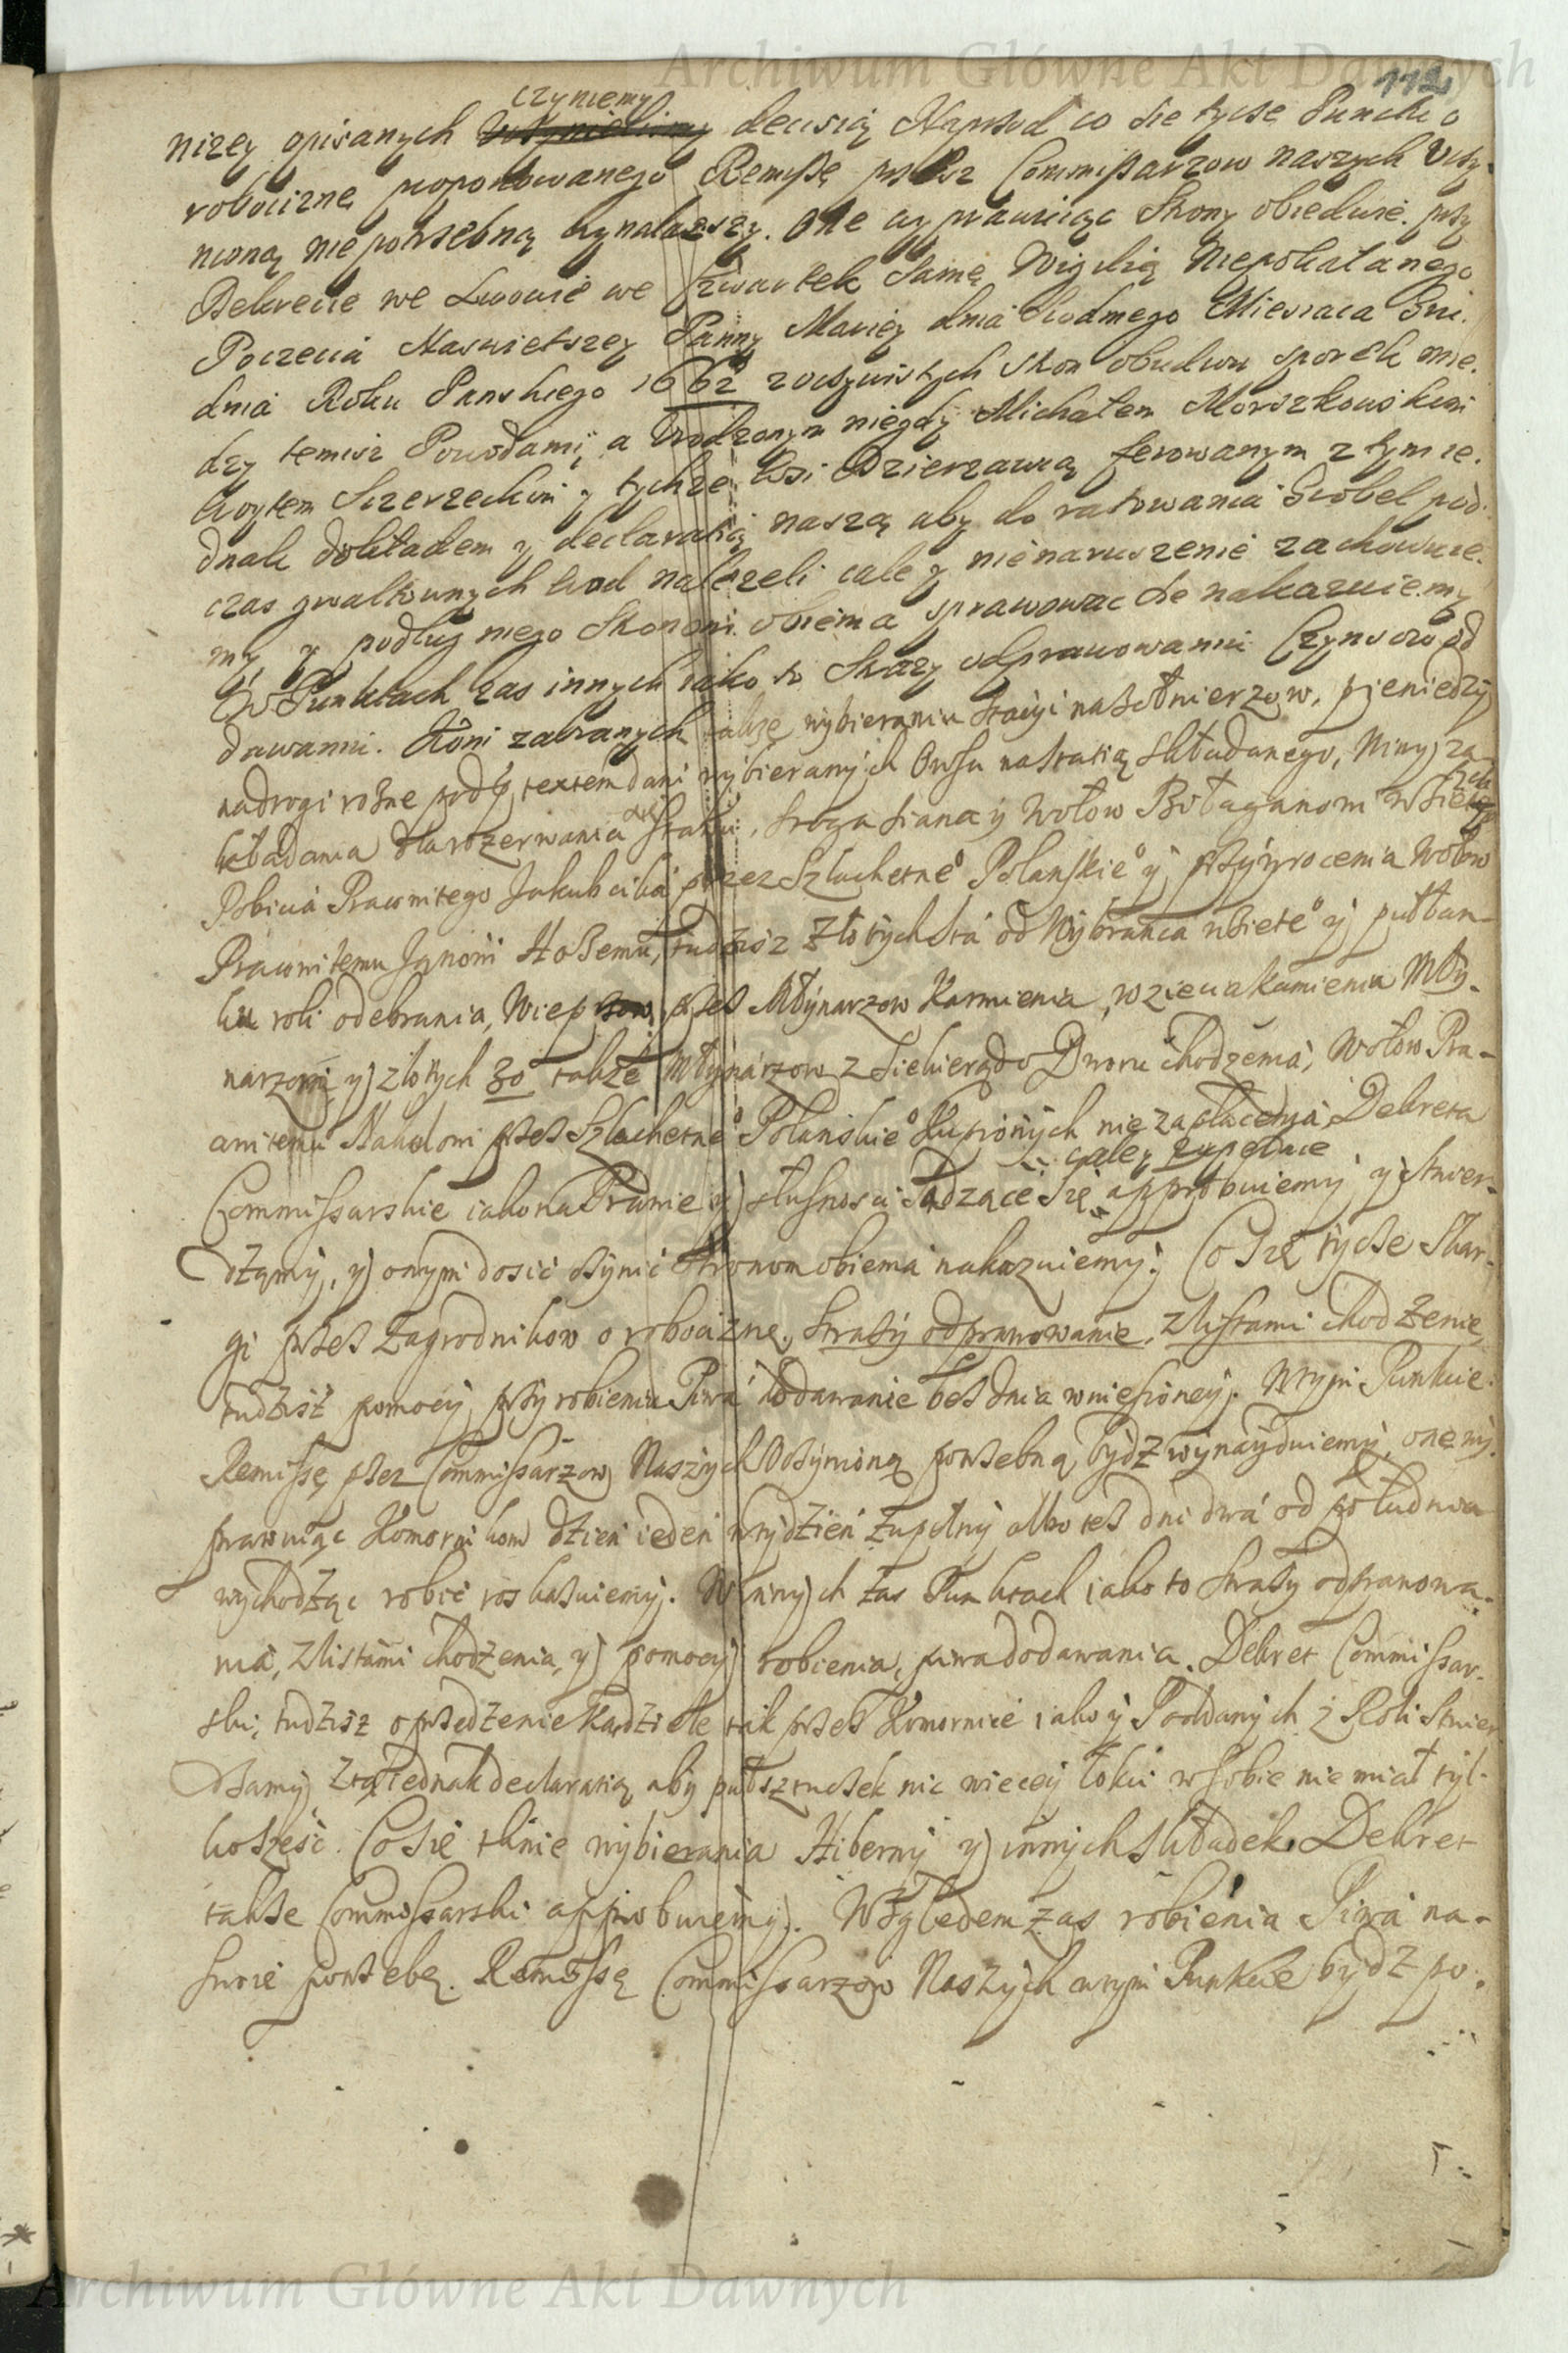 Archiwum Główne Akt Dawnych
112
czyniemy
nizey opisanych decisią Naprzod co sie tycze Punctu o
robociznę proponowanego Remissę przez Commissarzow naszych Uczy-
nioną niepotrzebną uznalezszy. One uprawuiąc Strony obiedwie przy
Dekrecie we Lwowie we Czwartek Samę Wigilią Niepokalanego
Poczecia Naswietszey Panny Mariey dnia Siodmego Miesiaca Gru-
dnia Roku Panskiego 1662 z oczywistych stron obudwu sporek mie-
dzy temisz Powodami, a Urodzonym niegdy Michałem Morszkowskim
Woytem Szczerzeckim y tychze Wsi Dzierzawcą ferowanym z tym ie-
dnak dokładem y declaratią naszą aby do ratowania Grobel pod
czas gwałtownych wod nalezeli cale y nienaruszenie zachowuie-
my, y podług niego Stronom obiema sprawowac sie nakazuiemy
W Punktach zas innych iako to Strazy odprawowaniu Czynszow od
dawaniu. Koni zabranych takze wybieraniu Stacyi na Zołnierzow, pieniedzy
na drogi rożne pod textem dani wybieranych Owsu na stratią składanego, Winy za-
kładania dla rozerwania Statku, sroga siana y wołow Bołaganom wzietych
Pobicia Pracowitego Jakuba przez Szlachetne° Polanskie° y przywrocenia wołow
Pracowitemu Hosemu, tudziesz Złotych sta od Wybranca wziete° y pułłan-
ku roli odebrania, Wieprzow przes Młynarzow Karmienia, wzieciu kamienia Mły-
narzom y złotych 30 takze Młynarzow z Siekierą do Dworu chodzenia, Wołow Pra-
cowitemu Nakoloni przes Szlachetne° Polanskie° Kupionych niezapłacenia, Dekreta
cale y zupełnie
Commissarskie iako na Prawie y słusnosci Sadzące Się approbuiemy y stwier-
dzamy, y onym dosic czynic stronom obiema nakazuiemy. Co Się tycze Skar-
gi przes Zagrodnikow o robociznę, Strazy odprawowanie, z listami chodzenie,
tudziesz pomocy przy robieniu Piwa dodawanie bes dnia wniesioney. W tym Punkcie
Remissę przez Commissarzow Naszych Uczynioną potrzebną bydz wynayduiemy, one u-
prawuiąc Komornikom dzien ieden w tydzien zupełny albo tes dni dwa od południa
wychodząc robic roskazuiemy. W innych zas Punktach iako to Strazy odprawowa-
nia, z listami chodzenia, y pomocy robienia, piwa dodawania. Dekret Commissar-
ski, tudziesz o przedzenie Kądziele tak przes Komornice iako y Poddanych z Roli stwier
dzamy z tą iednak declaratią aby puł sztuczek nic wiecey łokci w sobie nie miał tyl-
ko szesc. Co sie tknie wybierania Hiberny y innych składek, Dekret
takze Commissarski approbuiemy. Względem zas robienia Piwa na-
swoie potrzebę. Remissę Commissarzow Naszych w tym Punkcie bydz po-
Archiwum Główne Akt Dawnych